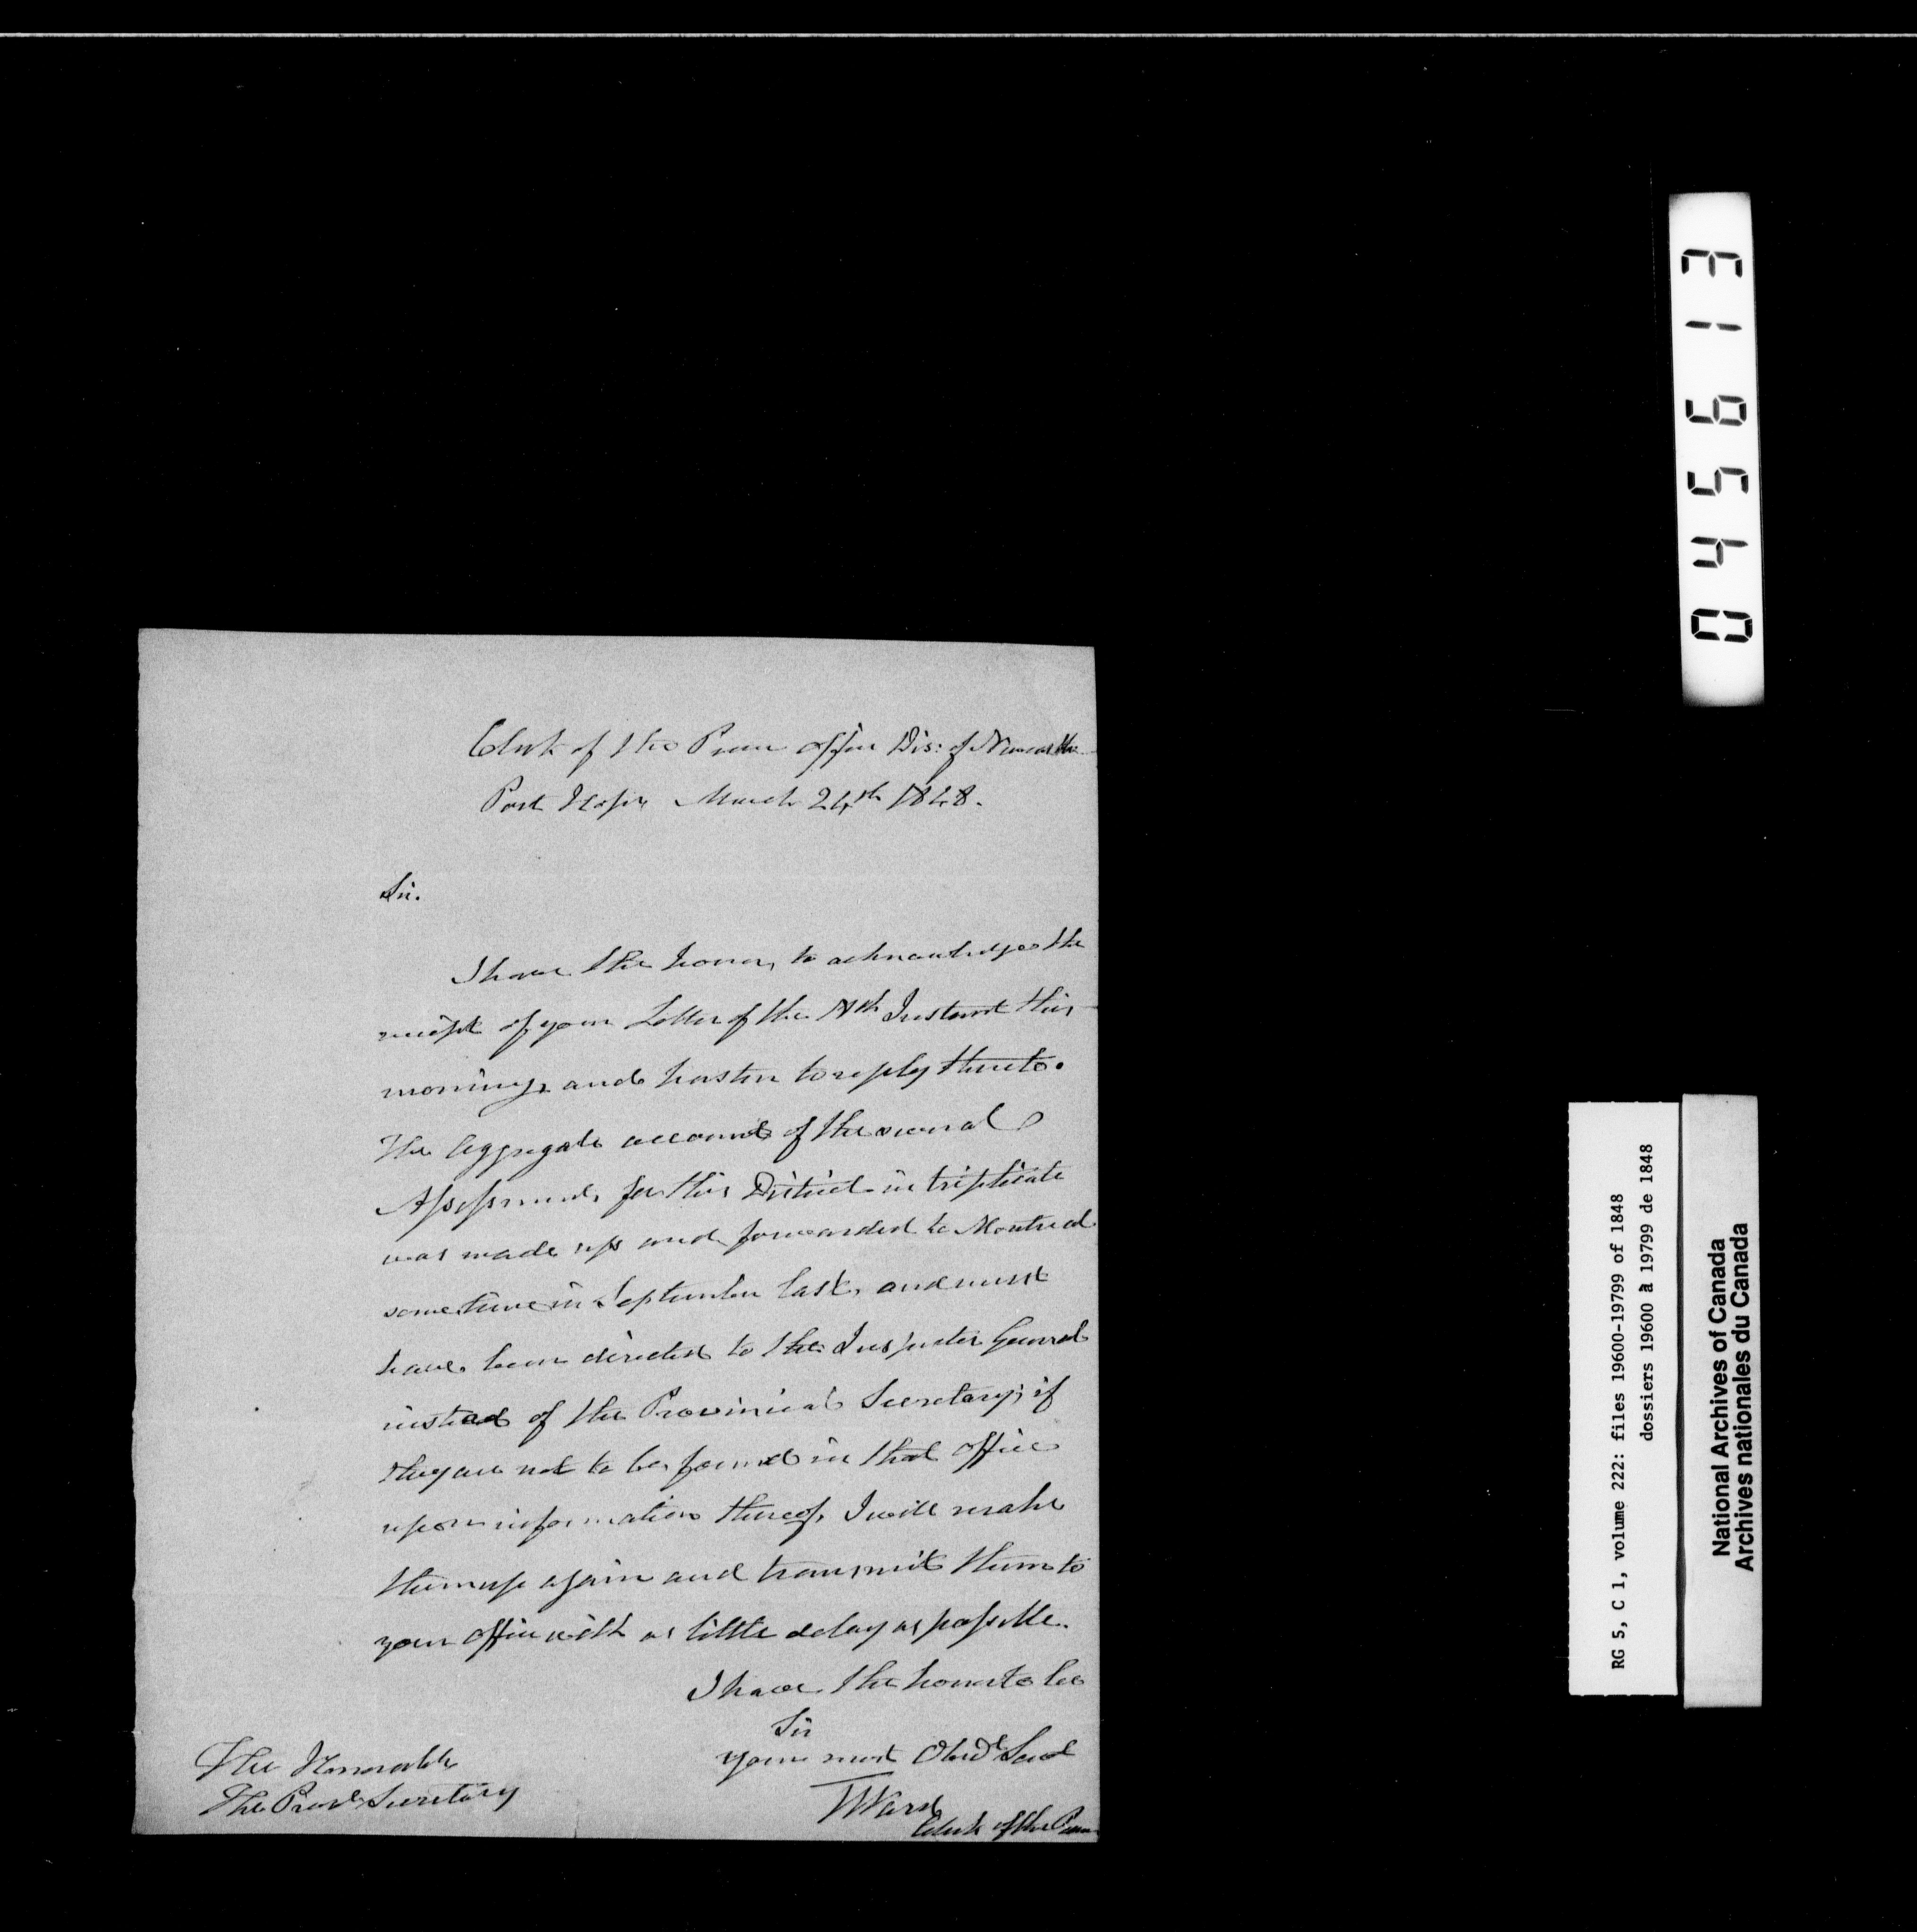 Clerk of the Peace office Dis: of Newcastle
Port Hope March 24th 1848.
Sir.
I have the honor, to acknowledge the
receipt of your Letter of the Instant this
morning, and hasten to reply thereto.
The aggregate account of the several
Assessments for this District in triplicate
was made up and forwarded to Montreal
sometime in September last, and must
have been directed to the Inspector General
instead of the Provincial Secretary; if
they are not to be found in that office
upon information thereof, I will make
them up again and transmit them to
your office with as little delay as possible.
I have the honor to be
Sir
your most Obedt Servt
TWard
Clerk of the Peace
The Honorable
The Provl Secretary
045613
RG 5, C 1, volume 222: files 19600-19799 of 1848
dossiers 19600 à 19799 de 1848
National Archives of Canada
Archives nationales du Canada